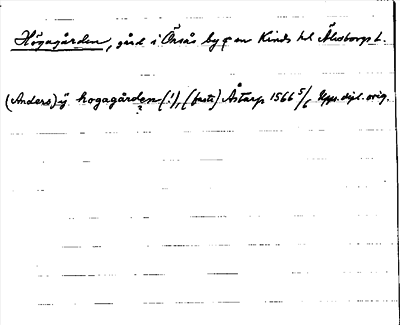 Högagården, gård i Önsås by o en Kinds hd Älvsborgs l.
(Anders) ij hogagården (!), (faste) Åstarp 1566 5/6 Upps. dipl. orig.
?